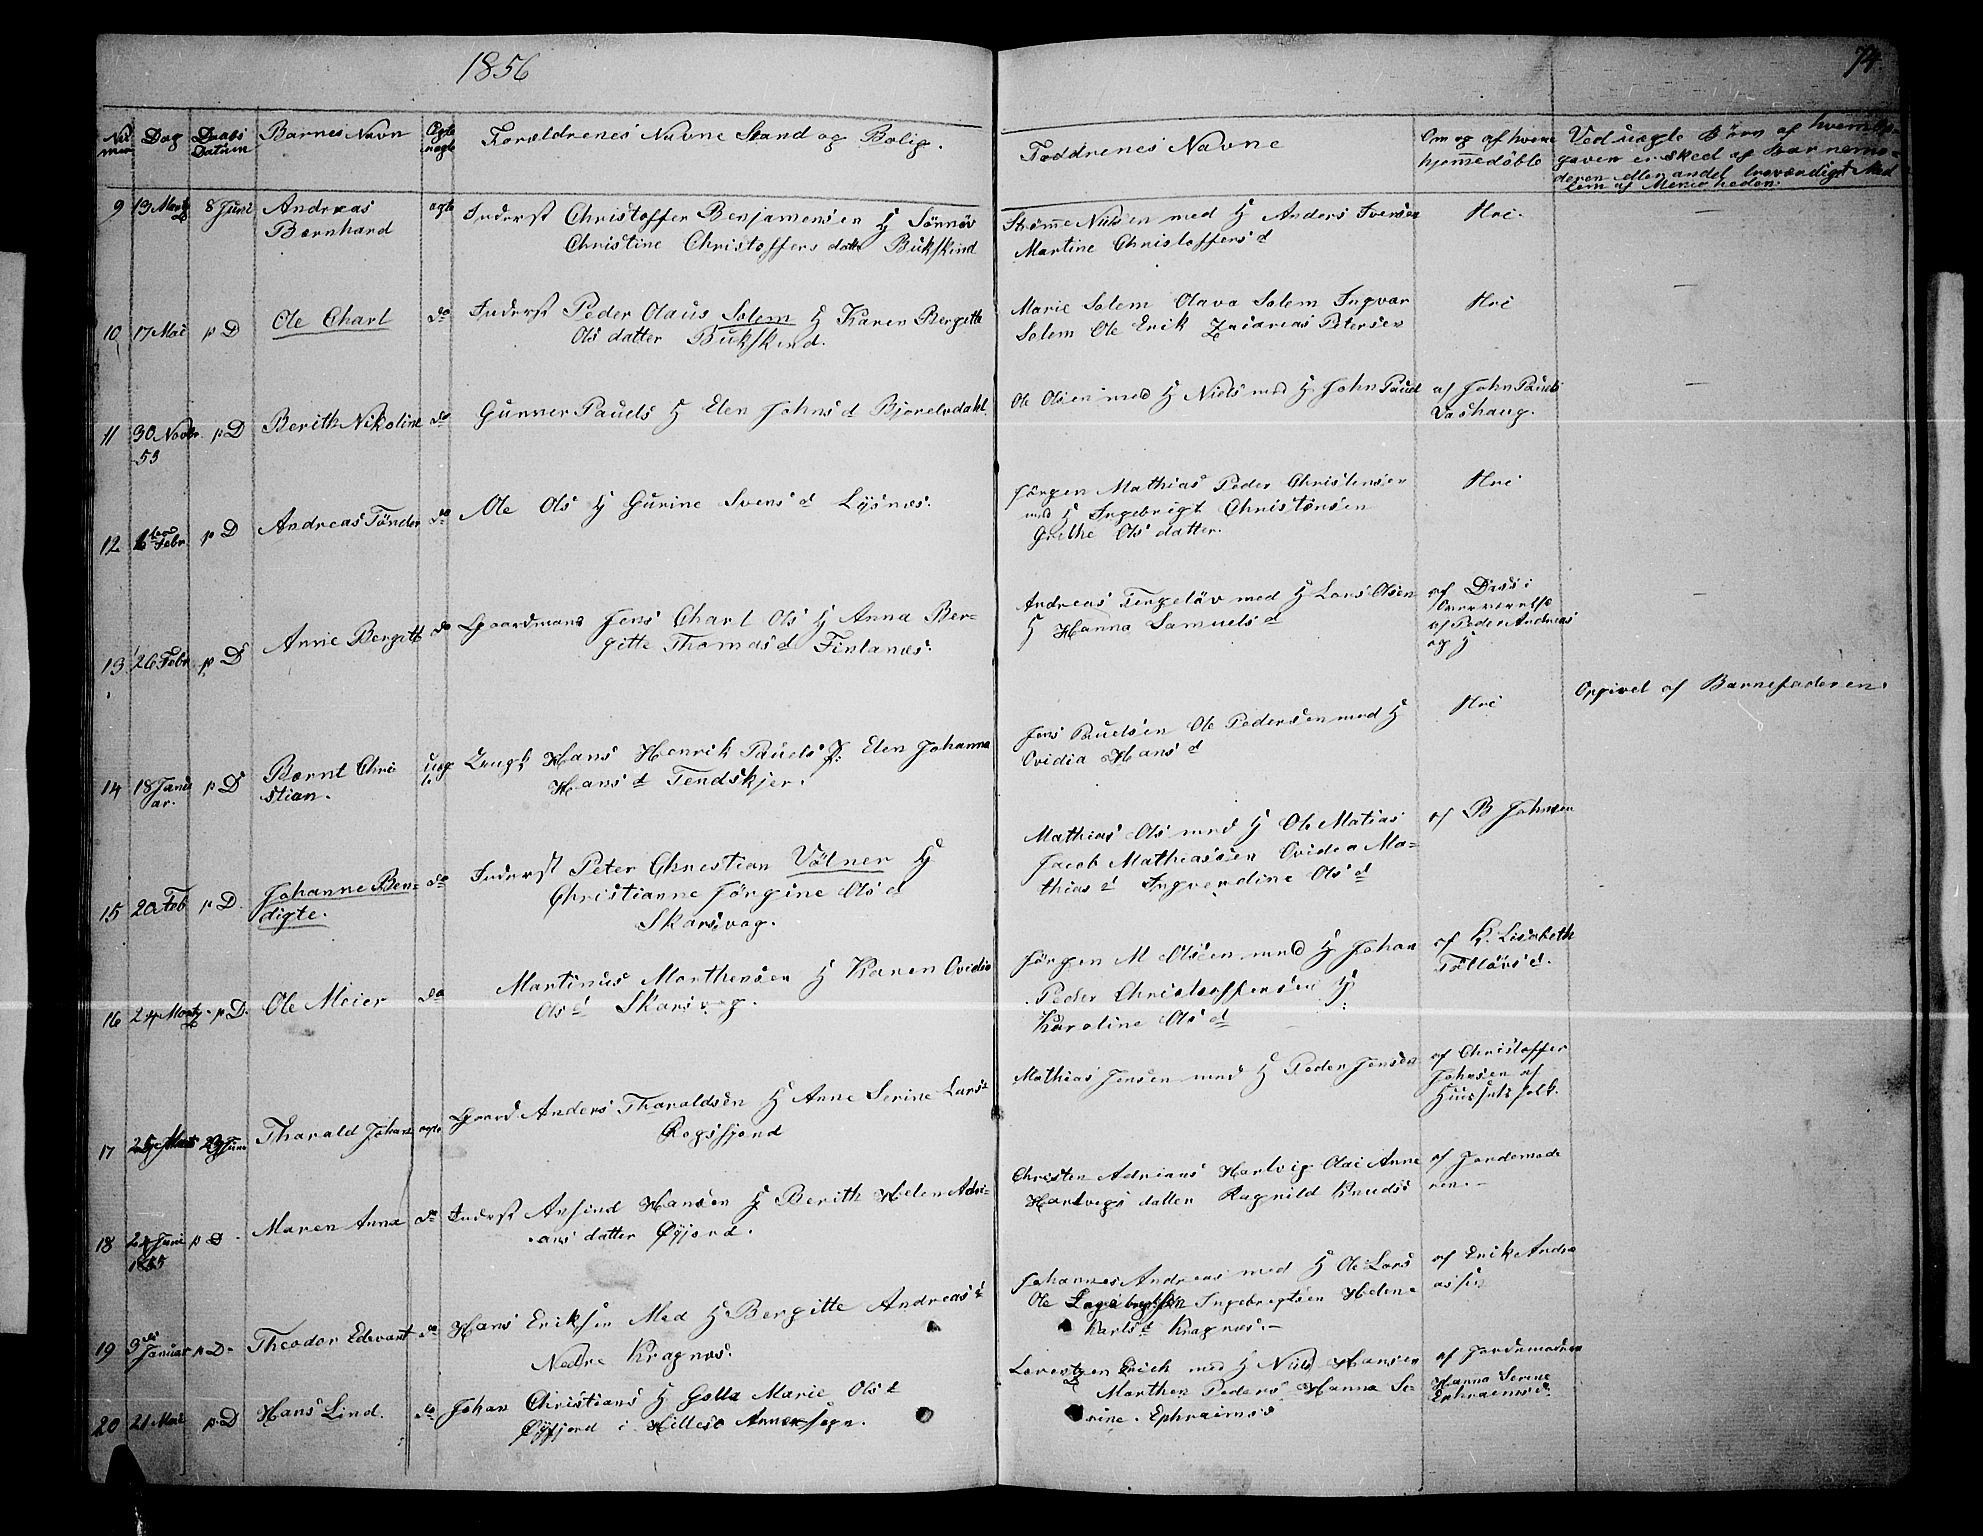 1856
74.
Nummer Dag Daabs Datum Barnes Navn Ægte uægte Forældrenes Navne Stand og Bolig.
Faddrenes Navne Om og af hvem hjemmedøbte
Ved uægte Børn af hvem Opgaven er sked af Barnemoderen eller andet troværdigt Medlem af Menigheden.
9 13 Marts 8 Juni Andreas Bærnhard ægte Inderst Christoffer Benjamensen H Sönnöv
Christine Christoffers datt Bukskind
Strøme Nilsen med H Anders Iversen
Martine Christoffers d
Nei. —
10 17 Mai p D Ole Charl do Inderst Peder Olaus Solem H Karen Bergitte
Ols datter Bukskind.
Marie Solem Olava Solem Ingvar
Solem Ole Erik Zacarias Petersen
Nei —
11 30 Novbr. 55 p D Berith Nikoline do Gunner Pauels H Elen Johns d Bjorelvdahl.
Ole Olsen med H Niels med H John Pauel
af John Pauels
Vashaug. —
12 Febr p D Andreas Tönder do Ole Ols H Gurine Svens d Lysnæs.
Jörgen Mathias Peder Christensen
med H Ingebrigt Christensen
Grethe Ols datter.
Nei
13 26 Febr p D Anne Bergitte do Gaardmand Jens Charl Ols H Anna Ber-
gitte Thomas d Finlanæs.
Andreas Tergeläv med H Lars Olsen
H Hanna Samuels d
af Diss i
Overværelse
af Peder Andreas
og H —
14 18 Janu ar. p D Bærnt Chri stian. uæg te Ungk Hans Henrik Pauels P: Elen Johanna
Hans d Tendskjer.
Jens Paulsen Ole Pedersen med H
Ovidia Hans d
Nei
Opgivet af Barnefaderen.
15 20 Feb p D. Johanne Ben- digte. do Inderst Peter Christian Völner H
Christianne Jörgine Ols d
Skarsvag.
Mathias Ols med H Ole Matias
Jacob Mathiassen Ovidia Ma-
thias d Ingverdine Ols d
af B Johnsen
16 24 Marts p D. Ole Meier do Martinus Marthensen H Karen Ovidia
Ols d Skarsvag.
Jörgen M Olsen med H Johan
Peder Christoffersen H
Karoline Ols d
af K. Lisabeth
Tolløvs d.
17 Marts 29 Juni Tharald Johan ægte Gaard Anders Tharaldsen H Anne Serine Lars d
Rogsfjord
Mathias Jensen med H Peder Jensen
af Christoffer
Johnsen af
Huusets folk.
18 24 Juni 1855 p D Maren Anna do Inderst Arfind Hansen H Berith Helen Adri-
ans datter Øyjord.
Christen Adrians Hartvig Olai Anne
Hartvigs datter Ragnild Knuds
af Jordemode
ren.—
19 9 Januar p D. Theodor Edevart do Hans Eriksen Med H Bergitte Andreas d
Nedre Kragnæs.
Johannes Andreas med H Ole Lars
Ole Ingebrigtsen Ingebrigtsen Helene
Karls d Kragnæs.—
af Erik Andre
assen
20 21 Mai p D Hans Lind. do Johan Christians H Golla Marie Ols d
Øyfjord i Hillesø Annexsogn.
Lorentzen Erich med H Niels Hansen
Marthen Peders Hanna Se-
rine Ephraims d
af Jordemoderen
Hanna Serine
Ephraims d